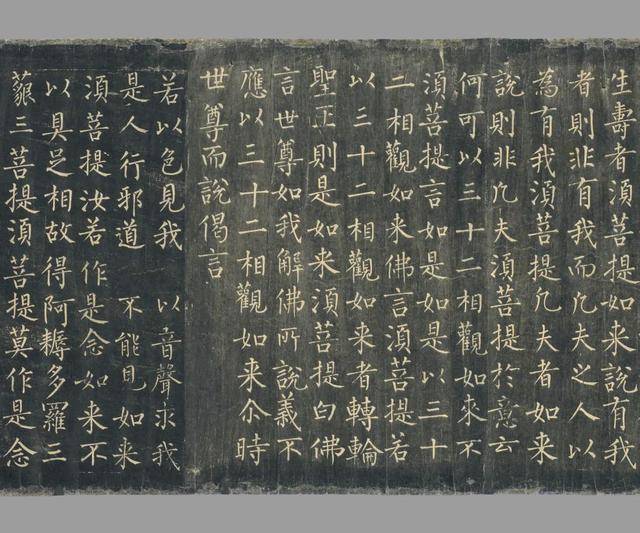 生壽者須菩提如来說有我
者則非有我而凡夫之人以
為有我須菩提凡夫者如来
說則非凡夫須菩提於意云
何可以三十二相觀如来不
須菩提言如是如是以三十
二相觀如来佛言須菩提若
以三十二相觀如来者轉輪
聖王則是如来須菩提白佛
言世尊如我解佛所說義不
應以三十二相觀如来尒時
世尊而說偈言
若以色見我 以音聲求我
是人行邪道 不能見如来
須菩提汝若作是念如来不
以具足相故得阿耨多羅三
藐三菩提須菩提莫作是念